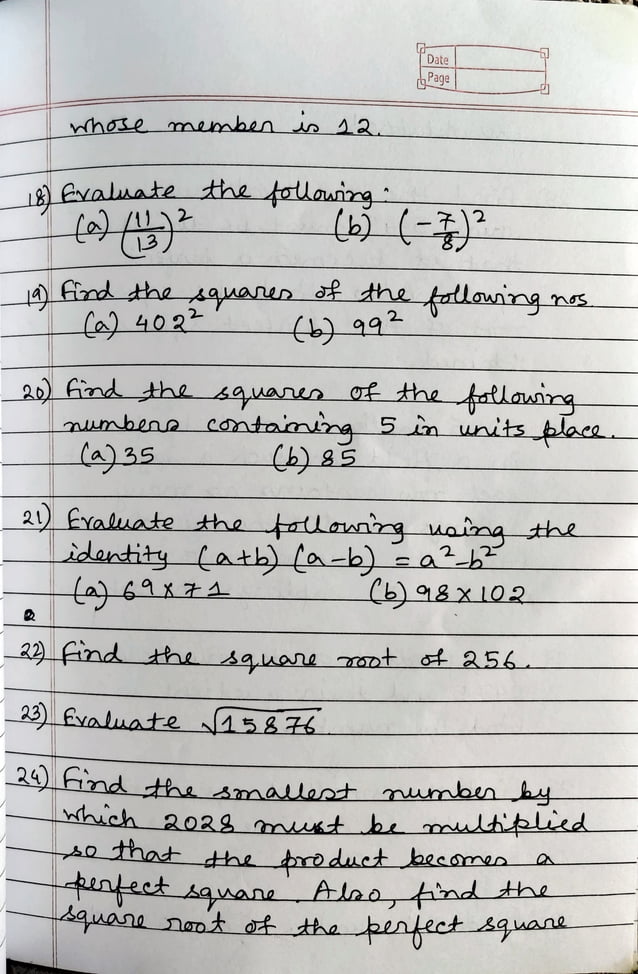 Date
Page
whose member is 12.
18) Evaluate the following:
(a) (11/13)² (b) (-7/8)²
19) Find the squares of the following nos.
(a) 402² (b) 99²
20) Find the squares of the following
numbers containing 5 in units place.
(a) 35 (b) 85
21) Evaluate the following using the
identity (a+b) (a-b) = a²-b²
(a) 69 x 71 (b) 98 x 102
22) Find the square root of 256.
23) Evaluate √15876
24) Find the smallest number by
which 2028 must be multiplied
so that the product becomes a
perfect square. Also, find the
square root of the perfect square